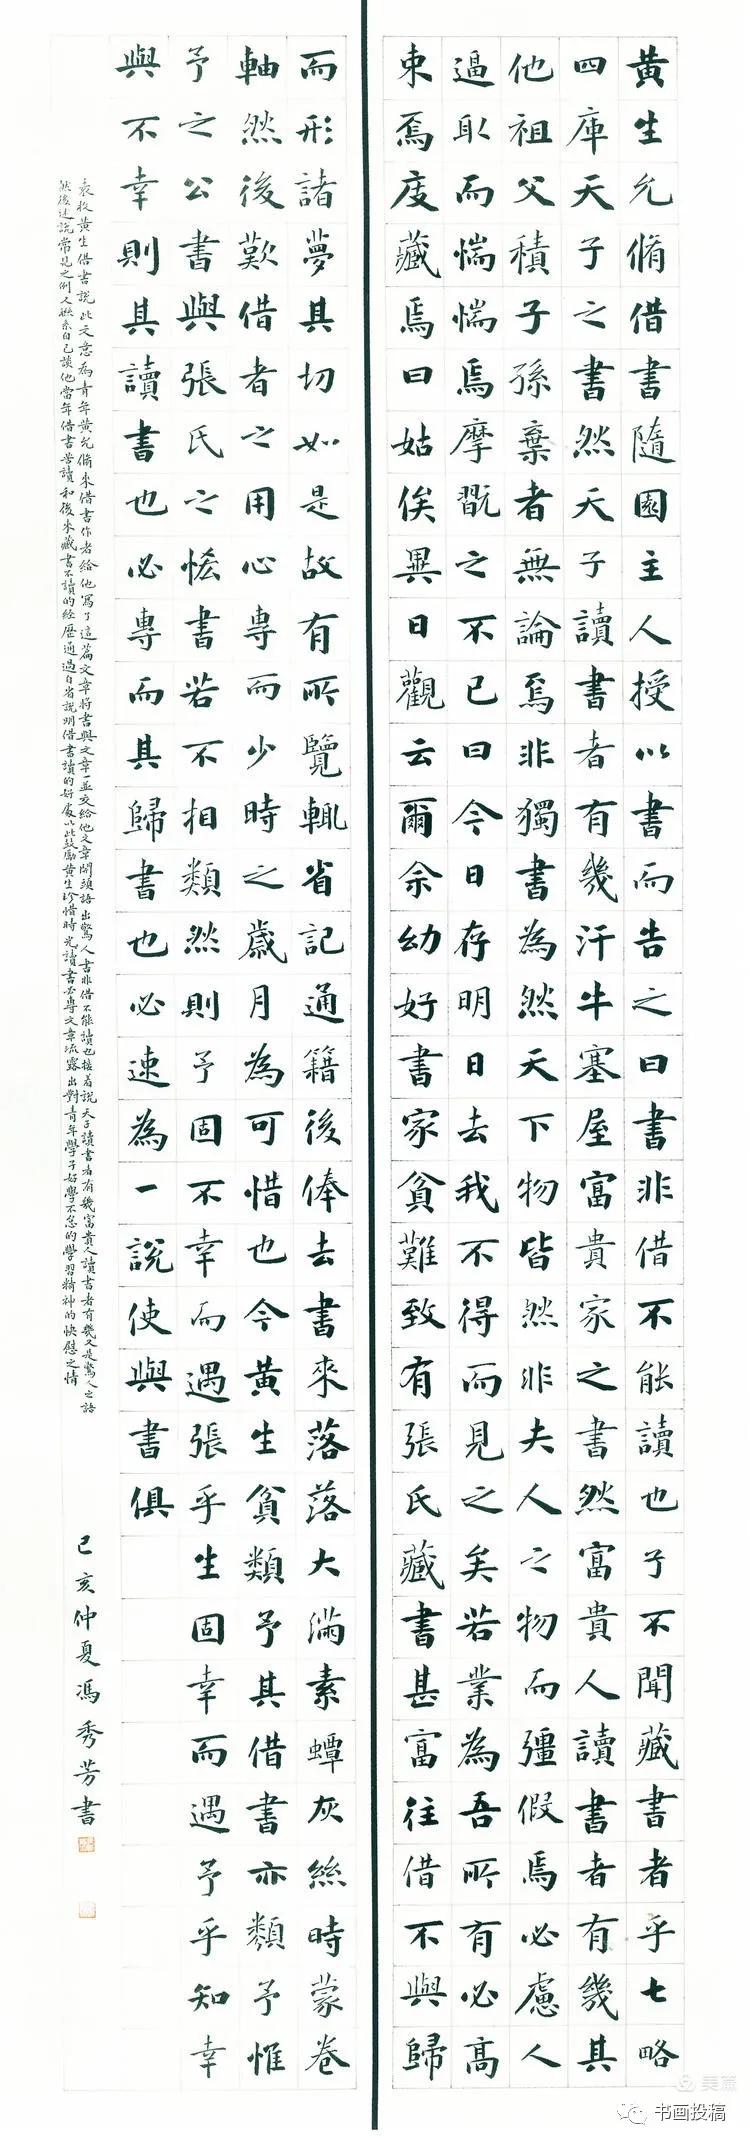 黄生允脩借書隨園主人授以書而告之曰書非借不能讀也子不聞藏書者乎七略
四庫天子之書然天子讀書者有幾汗牛塞屋富貴家之書然富貴人讀書者有幾其
他祖父積子孫棄者無論焉非獨書為然天下物皆然非夫人之物而彊假焉必慮人
逼取而惴惴焉摩翫之不已曰今日存明日去我不得而見之矣若業為吾所有必高
束焉庋藏焉曰姑俟異日觀云爾余幼好書家貧難致有張氏藏書甚富往借不與歸
而形諸夢其切如是故有所覽輒省記通籍後俸去書來落落大滿素蟫灰絲時蒙卷
軸然後歎借者之用心專而少時之歲月為可惜也今黄生貧類予其借書亦類予惟
予之公書與張氏之恡書若不相類然則予固不幸而遇張乎生固幸而遇予乎知幸
與不幸則其讀書也必專而其歸書也必速為一說使與書俱
袁枚黄生借書說此文意為青年黄允脩來借書作者給他寫了這篇文章將書與文章一並交給他文章開頭語出驚人書非借不能讀也接着說天子讀書者有幾富貴人讀書者有幾又是驚人之語
然後述說常見之例又聯系自己談他當年借書苦讀和後來藏書不讀的經歷通過自省說明借書讀的好處以此鼓勵黄生珍惜時光讀書必專文章流露出對青年學子好學不怠的學習精神的快慰之情
己亥仲夏馮秀芳書
美篇
书画投稿